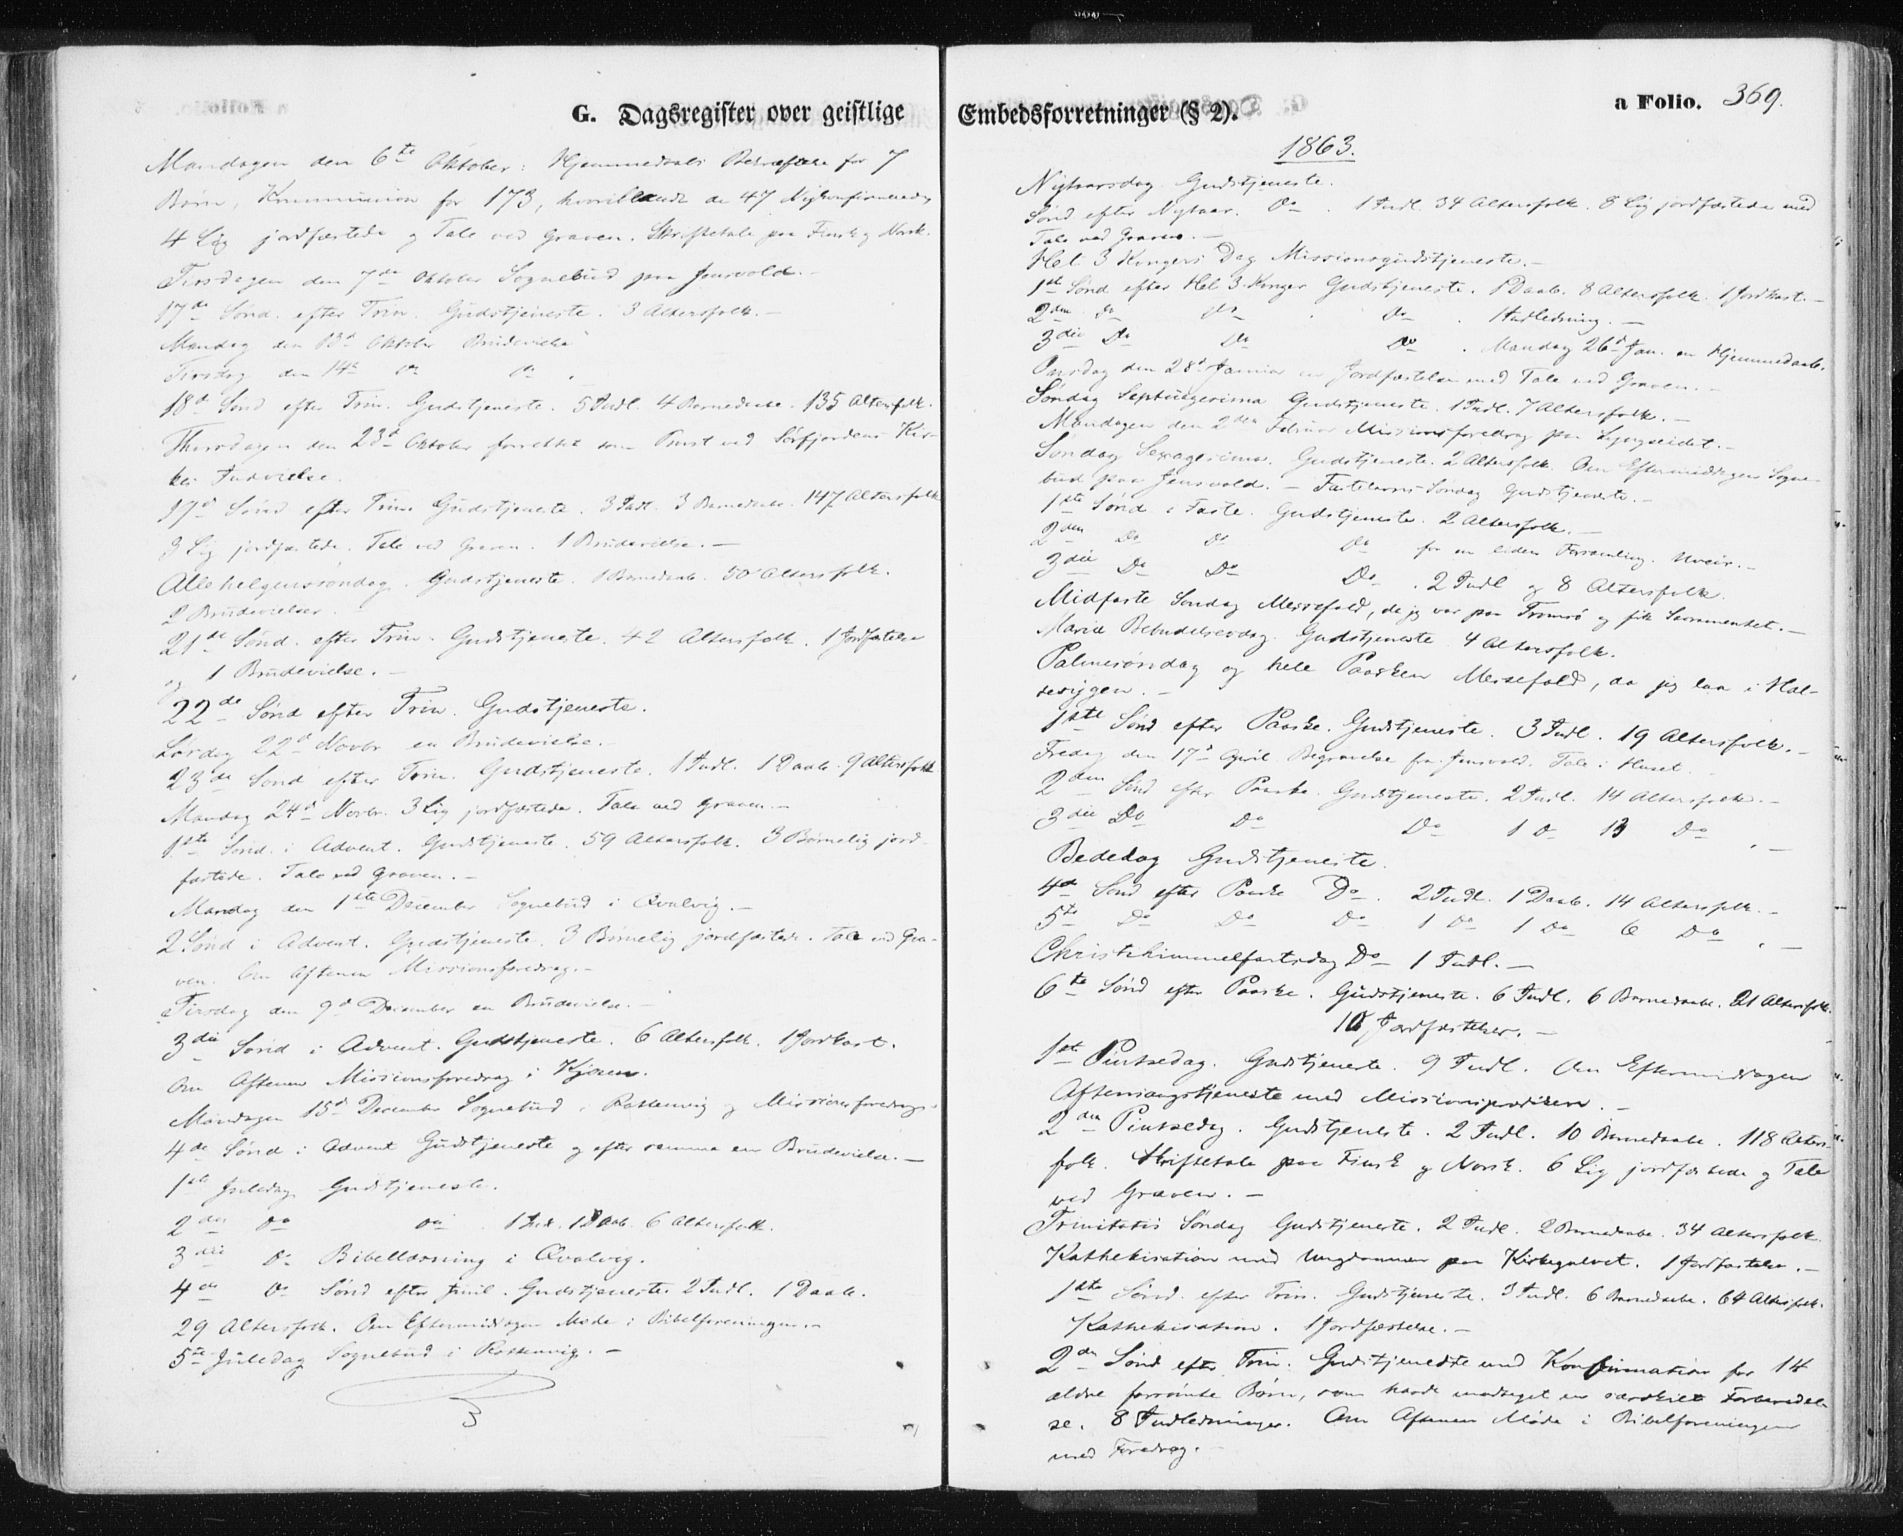 G. Dagsregister over geistlige
Mandagen den 6te Oktober: Hjemmedaabs Bekræftelse for 7
Børn, Kommunion for 173, hvoriblandt de 47 Nykonfirmerede,
4 Lig jordfæstede og Tale ved Graven. Skriftetale paa Finsk og Norsk.
Tirsdagen den 7de Oktober Sognebud paa Jensvold.–
17de Sønd. efter Trin. Gudstjeneste. 3 Altersfolk.–
Mandag den 13d Oktober Brudevielse
Tirsdag den 14d Do Do.
18d Sønd efter Trin. Gudstjeneste. 5 Indl. 4 Barnedaabe. 135 Altersfolk.
Thorsdagen den 23d Oktober forrettet som Provst ved Sørfjordens Kir-
kes Indvielse.
17d Sønd efter Trin. Gudstjeneste. 3 Indl. 3 Barnedaabe. 147 Altersfolk
3 Lig jordfæstede. Tale ved Graven. 1 Brudevielse.–
Allehelgenssøndag. Gudstjeneste. 1 Barnedaab. 50 Altersfolk.
2 Brudevielser.
21de Sønd. efter Trin. Gudstjeneste. 42 Altersfolk. 1 Jordfæstelse
og 1 Brudevielse.–
22de Sønd efter Trin. Gudstjeneste.
Lørdag 22d Novbr en Brudevielse.–
23de Sønd efter Trin. Gudstjeneste. 1 Indl. 1 Daab. 9 Altersfolk
Mandag 24d Novbr. 3 Lig jordfæstede. Tale ved Graven.–
1ste Sønd. i Advent. Gudstjeneste. 59 Altersfolk. 3 Børnelig jord-
fæstede. Tale ved Graven.–
Mandag den 1ste December Sognebud i Qvalvig.–
2. Sønd i Advent. Gudstjeneste. 3 Børnelig jordfæstede. Tale ved Gra-
ven. Om Aftenen Missionsforedrag.–
Tirsdag den 9d December en Brudevielse.–
3die Sønd i Advent. Gudstjeneste. 6 Altersfolk. 1 Jordkast.
Om Aftenen Missionsforedrag i Kjosen.
Mandagen 15d December Sognebud i Rottenvig og Missionsforedrag.
4de Sønd i Advent Gudstjeneste og efter samme en Brudevielse.–
1ste Juledag Gudstjeneste.
2den Do Do 1 Indl. 1 Daab. 6 Altersfolk.
3die Do Bibellæsning i Qvalvig.
4de Do Sønd efter Juul. Gudstjeneste. 2 Indl. 1 Daab.
29 Altersfolk. Om Eftermiddagen Møde i Bibelforeningen.–
5te Juledag Sognebud i Rottenvig.–
Embedsforretninger (§ 2).
a Folio. 369.
1863.
Nytaarsdag Gudstjeneste.
Sønd efter Nytaar. Do. 1 Indl. 34 Altersfolk. 8 Lig jordfæstede med
Tale ved Graven.–
Hel. 3 Kongers Dag Missionsgudstjeneste.–
1ste Sønd efter Hel 3 Konger Gudstjeneste. 1 Daab. 8 Altersfolk. 1 Jordkast.–
2den Do Do Do. Indledning.–
3die Do Do Do. Mandag 26d Jan. en Hjemmedaab.
Onsdag den 28d Januar en Jordfæstelse med Tale ved Graven.–
Søndag Septuagesima Gudstjeneste. 1 Indl. 7 Altersfolk.–
Mandagen den 2den Februar Missionsforedrag paa Lyngseidet.–
Søndag Sexagesima. Gudstjeneste. 2 Altersfolk. Om Eftermiddagen Sogne-
bud paa Jensvold.– Fastelavns Søndag Gudstjeneste.–
1ste Sønd i Faste. Gudstjeneste. 2 Altersfolk.–
2den Do Do Do for en liden Forsamling. Uveir.–
3die Do Do Do. 2 Indl og 8 Altersfolk.
Midfaste Søndag Messefald, da jeg var paa Tromsø og fik Sammensket.–
Mariæ Bebudelsesdag. Gudstjeneste 4 Altersfolk.
Palmesøndag og hele Paasken Messefald, da jeg laa i Hal-
sesygen.–
1ste Sønd efter Paaske. Gudstjeneste. 3 Indl. 19 Altersfolk.–
Fredag den 17d April Begravelse fra Jensvold. Tale i Huset.
2den Sønd efter Paaske. Gudstjeneste. 2 Indl. 14 Altersfolk.–
3die Do Do Do 1 Do 13 Do.–
Bededag Gudstjeneste.
4de Sønd efter Paaske Do. 2 Indl. 1 Daab. 14 Altersfolk.–
5te Do Do Do 1 Do 1 Do 6 Do.–
Christi himmelfartsdag Do 1 Indl.–
6te Sønd efter Paaske. Gudstjeneste. 6 Indl. 6 Barnedaabe. 21 Altersfolk.
10 Jordfæstelser.–
1ste Pintsedag. Gudstjeneste. 9 Indl. Om Eftermiddagen
Aftensangstjeneste med Missionsprædiken.–
2den Pintsedag. Gudstjeneste. 2 Indl. 10 Barnedaabe. 118 Alters-
folk. Skriftetale paa Finsk og Norsk. 6 Lig jordfæstede og Tale
ved Graven.–
Trinitatis Søndag Gudstjeneste. 2 Indl. 2 Barnedaabe. 34 Altersfolk
Kathekisation med Ungdommen paa Kirkegulvet. 1 Jordfæstelse.–
1ste Sønd. efter Trin. Gudstjeneste. 3 Indl. 6 Barnedaabe. 64 Altersfolk.
Kathekisation. 1 Jordfæstelse.–
2den Sønd efter Trin. Gudstjeneste med Konfirmation for 14
ældre forsømte Børn, som havde modtaget en særskilt Forberedel-
se. 8 Indledninger. Om Aftenen Møde i Bibelforeningen
med Foredrag.–